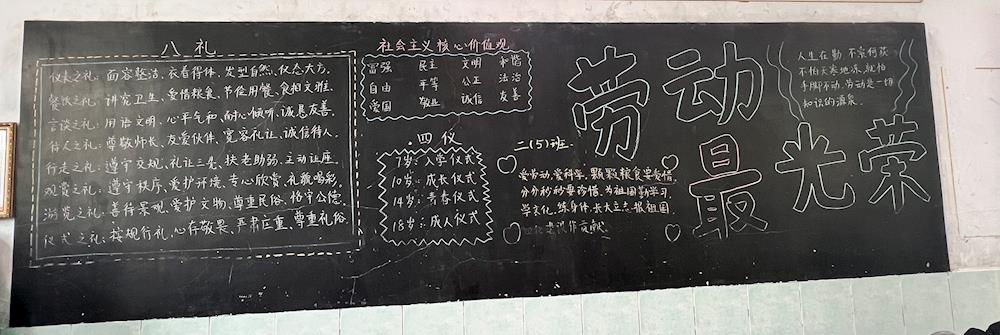 八礼
仪表之礼：面容整洁、衣着得体、发型自然、仪态大方。
餐饮之礼：讲究卫生、爱惜粮食、节俭用餐、食相文雅。
言谈之礼：用语文明、心平气和、耐心倾听、诚恳友善。
待人之礼：尊敬师长、友爱伙伴、宽容礼让、诚信待人。
行走之礼：遵守交规、礼让三先、扶老助弱、主动让座。
观赏之礼：遵守秩序、爱护环境、专心欣赏、礼貌喝彩。
游览之礼：善待景观、爱护文物、尊重民俗、恪守公德。
仪式之礼：按规行礼、心存敬畏、严肃庄重、尊重礼俗。
社会主义核心价值观
富强 民主 文明 和谐
自由 平等 公正 法治
爱国 敬业 诚信 友善
四仪
7岁：入学仪式
10岁：成长仪式
14岁：青春仪式
18岁：成人仪式
二(5)班
爱劳动，爱科学，颗颗粮食要爱惜，
分分秒秒要珍惜，为祖国勤学习，
学文化，练身体，长大立志报祖国，
建设作贡献
劳动最光荣
人生在勤 不索何获
不怕天寒地冻，就怕
手脚不动，劳动是一切
知识的源泉。